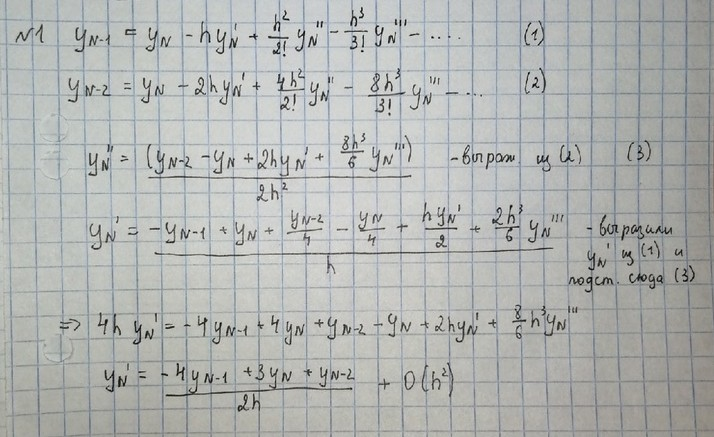 №1 y_{N-1} = y_N - hy_N' + \frac{h^2}{2!} y_N'' - \frac{h^3}{3!} y_N''' - .... (1)
y_{N-2} = y_N - 2hy_N' + \frac{4h^2}{2!} y_N'' - \frac{8h^3}{3!} y_N''' - ... (2)
y_N'' = \frac{(y_{N-2} - y_N + 2hy_N' + \frac{8h^3}{6} y_N''')}{2h^2} - выраж. из (2) (3)
y_N' = \frac{-y_{N-1} + y_N + \frac{y_{N-2}}{4} - \frac{y_N}{4} + \frac{hy_N'}{2} + \frac{2h^3}{6} y_N'''}{h} - выразили
y_N' из (1) и
подст. сюда (3)
⇒ 4h y_N' = -4y_{N-1} + 4y_N + y_{N-2} - y_N + 2hy_N' + \frac{8}{6} h^3 y_N'''
y_N' = \frac{-4y_{N-1} + 3y_N + y_{N-2}}{2h} + O(h^2)